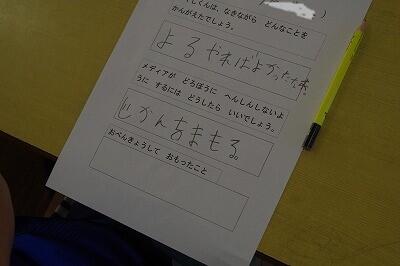 くんは、なきながら どんなことを
かんがえたでしょう。
よるやればよかったな。
メディアが どろぼうに へんしんしないよ
うに するには どうしたら いいでしょう。
じかんをまもる。
おべんきょうして おもったこと